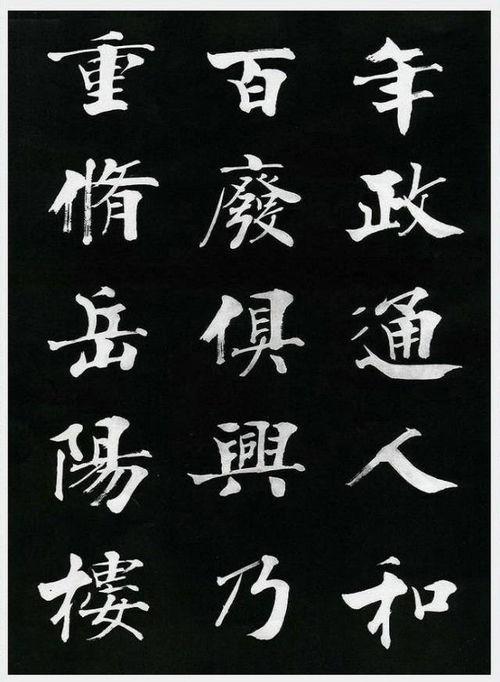 年政通人和
百廢俱興乃
重脩岳陽樓